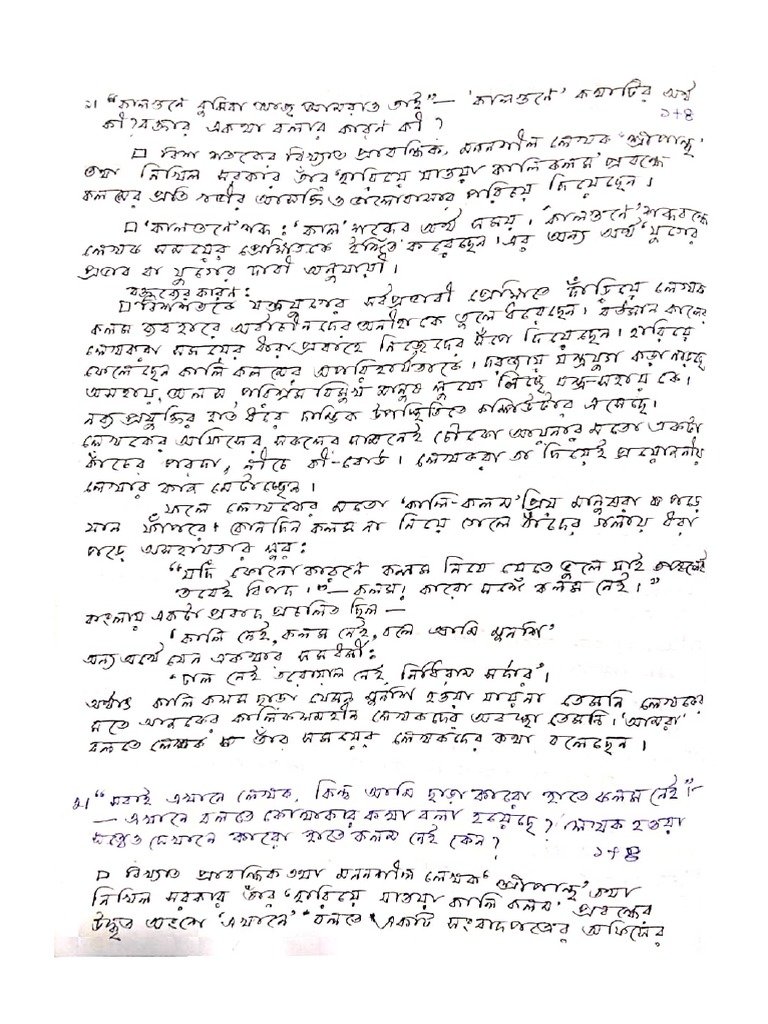 ১। “কালগুনে বুঝিবা আজ আমরাও তাই” — ‘কালগুনে’ কথাটির অর্থ
কী? বক্তার একথা বলার কারণ কী? ১+৪
□ বিশ শতকের বিখ্যাত প্রাবন্ধিক, মননশীল লেখক ‘শ্রীপান্থ’
তথা নিখিল সরকার তাঁর ‘হারিয়ে যাওয়া কালি কলম’ প্রবন্ধে
কলমের প্রতি গভীর আসক্তি ও ভালোবাসার পরিচয় দিয়েছেন।
□ ‘কালগুনে’ শব্দ : ‘কাল’ শব্দের অর্থ সময়। ‘কালগুনে’ শব্দবন্ধে
লেখক সময়ের প্রেক্ষিতকে ইঙ্গিত করেছেন। এর অন্য অর্থ ‘যুগের
প্রভাব বা যুগের দাবী অনুযায়ী।
বক্তব্যের কারন :
□ বিংশশতকে যন্ত্রযুগের সর্বপ্রভাবী প্রেক্ষিতে দাঁড়িয়ে লেখক
কলম ব্যবহারে অর্বাচীনদের অনীহাকে তুলে ধরেছেন। বর্তমান কালের
লেখকরা সময়ের ধারা প্রবাহে নিজেদের সঁপে দিয়েছেন। হারিয়ে
ফেলেছেন কালি কলমের অপরিহার্যতাকে। দরজায় যন্ত্রযুগ কড়া নাড়ছে
অসহায়, অলস, পরিশ্রমবিমুখ মানুষ লুফে নিচ্ছে যন্ত্র-সহায় কে।
নব্য প্রযুক্তির হাত ধরে দাম্ভিক উপস্থিতিতে কম্পিউটার এসেছে।
লেখকের অফিসের সকলের সামনেই চৌকো আয়নার মতো একটা
কাঁচের পরদা, নীচে কী-বোর্ড। লেখকরা তা দিয়েই প্রয়োজনীয়
লেখার কাজ মেটাচ্ছেন।
ফলে লেখকের মতো ‘কালি-কলম’ প্রিয় মানুষরা পড়ে
যান ফাঁপরে। কোনদিন কলম না নিয়ে গেলে তাঁদের গলায় ধরা
পড়ে অসহায়তার সুর :
“যদি কোনো কারণে কলম নিয়ে যেতে ভুলে যাই তাহলেই
তবেই বিপদ।” — কলম! কারো সঙ্গে কলম নেই।”
বাংলায় একটা প্রবাদ প্রচলিত ছিল —
‘কালি নেই, কলম নেই, বলে আমি মুনশি’
অন্য অর্থে যেন একথার সমধর্মী :
“ঢাল নেই তরোয়াল নেই, নিধিরাম সর্দার’।
অর্থাৎ কালি কলম ছাড়া যেমন মুনশি হওয়া যায়না তেমনি লেখকের
মতে আজকের কালিকলমহীন লেখকদের অবস্থা তেমনি। ‘আমরা’
বলতে লেখক তাঁর সময়ের লেখকদের কথা বলেছেন।
২। “সবাই এখানে লেখক, কিন্তু আমি ছাড়া কারো হাতে কলম নেই”
— এখানে বলতে কোথাকার কথা বলা হয়েছে? লেখক হওয়া
সত্ত্বেও সেখানে কারো হাতে কলম নেই কেন? ১+৪
□ বিখ্যাত প্রাবন্ধিক তথা মননশীল লেখক ‘শ্রীপান্থ’ তথা
নিখিল সরকার তাঁর ‘হারিয়ে যাওয়া কালি কলম’ প্রবন্ধের
উদ্ধৃত অংশে ‘এখানে’ বলতে একটি সংবাদপত্রের অফিসের